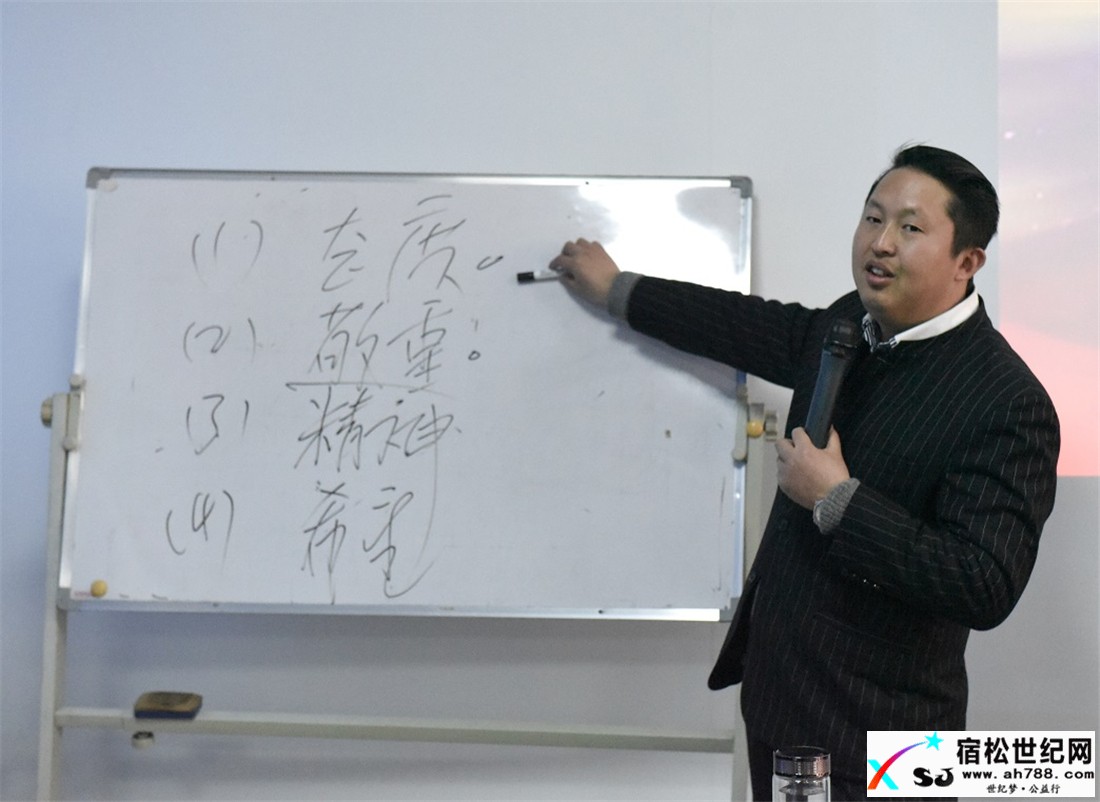 (1) 态度。
(2) 敬重。
(3) 精神
(4) 希望
宿松世纪网
XSJ www.ah788.com
世纪梦·公益行